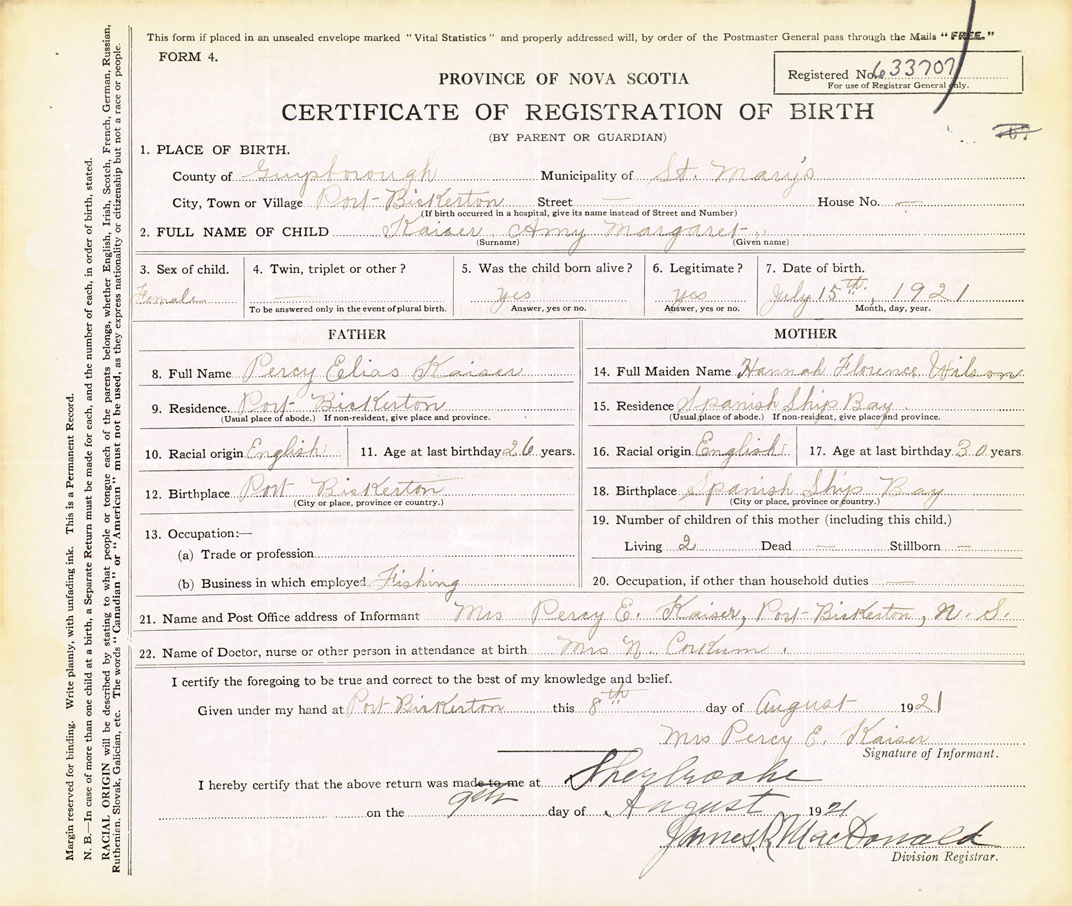 This form if placed in an unsealed envelope marked "Vital Statistics" and properly addressed will, by order of the Postmaster General pass through the Mails "FREE."
FORM 4.
PROVINCE OF NOVA SCOTIA
Registered No. 633707
For use of Registrar General only.
CERTIFICATE OF REGISTRATION OF BIRTH
(BY PARENT OR GUARDIAN)
1. PLACE OF BIRTH.
County of Guysborough Municipality of St. Mary's
City, Town or Village Port-Bickerton Street — House No. —
(If birth occurred in a hospital, give its name instead of Street and Number)
2. FULL NAME OF CHILD Kaiser, Amy Margaret.
(Surname) (Given name)
3. Sex of child. 4. Twin, triplet or other? 5. Was the child born alive? 6. Legitimate? 7. Date of birth.
Female — yes yes July 15th, 1921
To be answered only in the event of plural birth. Answer, yes or no. Answer, yes or no. Month, day, year.
FATHER
8. Full Name Percy Elias Kaiser
9. Residence Port-Bickerton
(Usual place of abode.) If non-resident, give place and province.
10. Racial origin English 11. Age at last birthday 26 years.
12. Birthplace Port Bickerton
(City or place, province or country.)
13. Occupation:—
(a) Trade or profession
(b) Business in which employed Fishing
MOTHER
14. Full Maiden Name Hannah Florence Wilson
15. Residence Spanish Ship Bay
(Usual place of abode.) If non-resident, give place and province.
16. Racial origin English 17. Age at last birthday 30 years
18. Birthplace Spanish Ship Bay
(City or place, province or country.)
19. Number of children of this mother (including this child.)
Living 2 Dead — Stillborn —
20. Occupation, if other than household duties —
21. Name and Post Office address of Informant Mrs Percy E. Kaiser, Port-Bickerton, N. S.
22. Name of Doctor, nurse or other person in attendance at birth Mrs N. Corkum.
I certify the foregoing to be true and correct to the best of my knowledge and belief.
Given under my hand at Port Bickerton this 8th day of August 1921
Mrs Percy E. Kaiser
Signature of Informant.
I hereby certify that the above return was made to me at Sherbrooke
on the 9th day of August 1921
James R MacDonald
Division Registrar.
Margin reserved for binding. Write plainly, with unfading ink. This is a Permanent Record.
N. B.—In case of more than one child at a birth, a Separate Return must be made for each, and the number of each, in order of birth, stated.
RACIAL ORIGIN will be described by stating to what people or tongue each of the parents belongs, whether English, Irish, Scotch, French, German, Russian,
Ruthenian, Slovak, Galician, etc. The words "Canadian" or "American" must not be used, as they express nationality or citizenship but not a race or people.